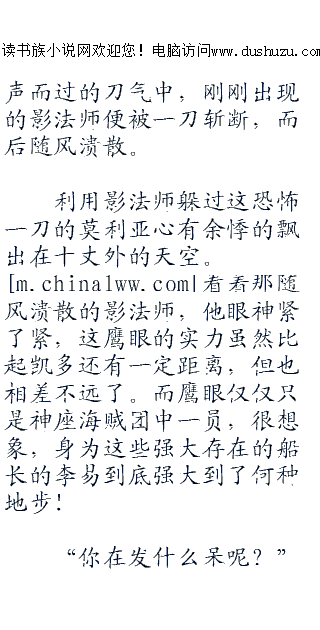 读书族小说网欢迎您！电脑访问www.dushuzu.com
声而过的刀气中，刚刚出现
的影法师便被一刀斩断，而
后随风溃散。
利用影法师躲过这恐怖
一刀的莫利亚心有余悸的飘
出在十丈外的天空。
[m.chinalww.com]看着那随
风溃散的影法师，他眼神紧
了紧，这鹰眼的实力虽然比
起凯多还有一定距离，但也
相差不远了。而鹰眼仅仅只
是神座海贼团中一员，很想
象，身为这些强大存在的船
长的李易到底强大到了何种
地步！
“你在发什么呆呢？”